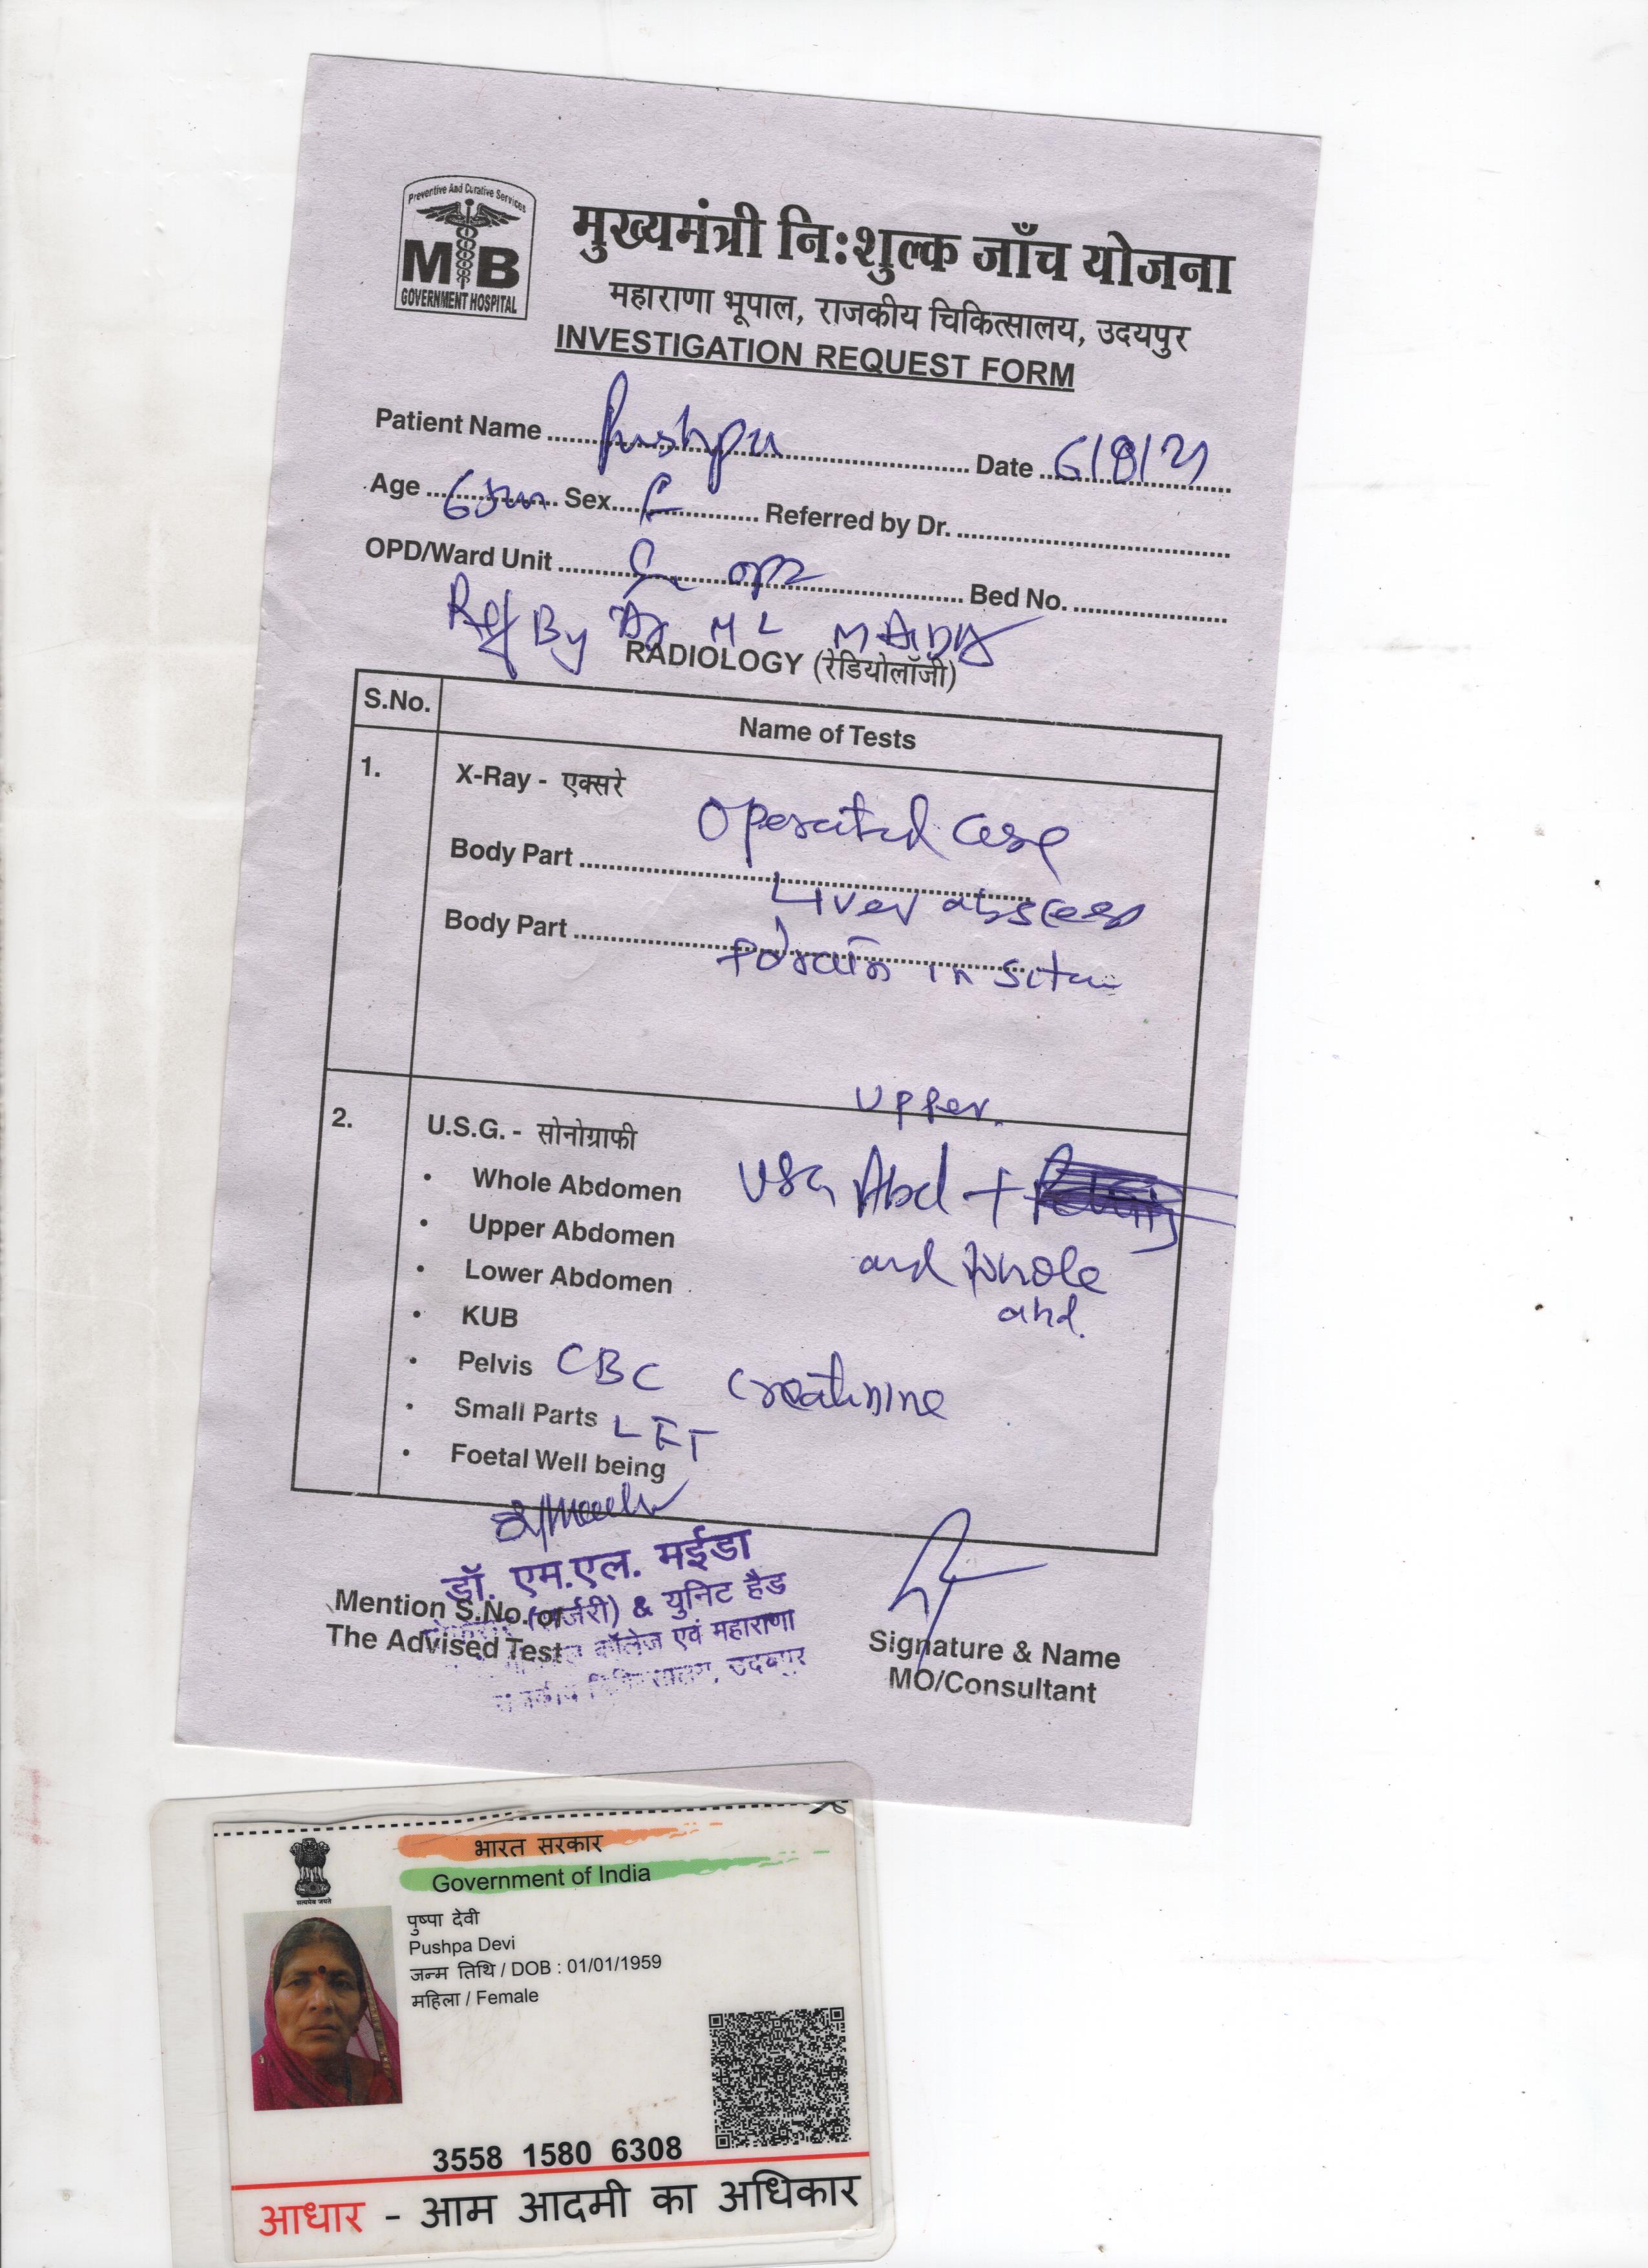 Preventive And Curative Services
MB
GOVERNMENT HOSPITAL
मुख्यमंत्री नि:शुल्क जाँच योजना
महाराणा भूपाल, राजकीय चिकित्सालय, उदयपुर
INVESTIGATION REQUEST FORM
Patient Name Pushpa Date 6/8/21
Age Sex F Referred by Dr.
OPD/Ward Unit Bed No.
Ref By Dr M L MAIDA
RADIOLOGY (रेडियोलॉजी)
S.No. Name of Tests
1. X-Ray - एक्सरे
Operated case
Body Part
Liver abscess
Body Part
drain in situ
Upper
2. U.S.G. - सोनोग्राफी
• Whole Abdomen USG Abd +
• Upper Abdomen
• Lower Abdomen and whole
• KUB abd.
• Pelvis CBC Creatinine
• Small Parts LFT
• Foetal Well being
डॉ. एम.एल. मईडा
(सर्जरी) & युनिट हैड
Mention S.No. of
कॉलेज एवं महाराणा
The Advised Test
राजकीय चिकित्सालय, उदयपुर
Signature & Name
MO/Consultant
भारत सरकार
Government of India
सत्यमेव जयते
पुष्पा देवी
Pushpa Devi
जन्म तिथि / DOB : 01/01/1959
महिला / Female
3558 1580 6308
आधार - आम आदमी का अधिकार